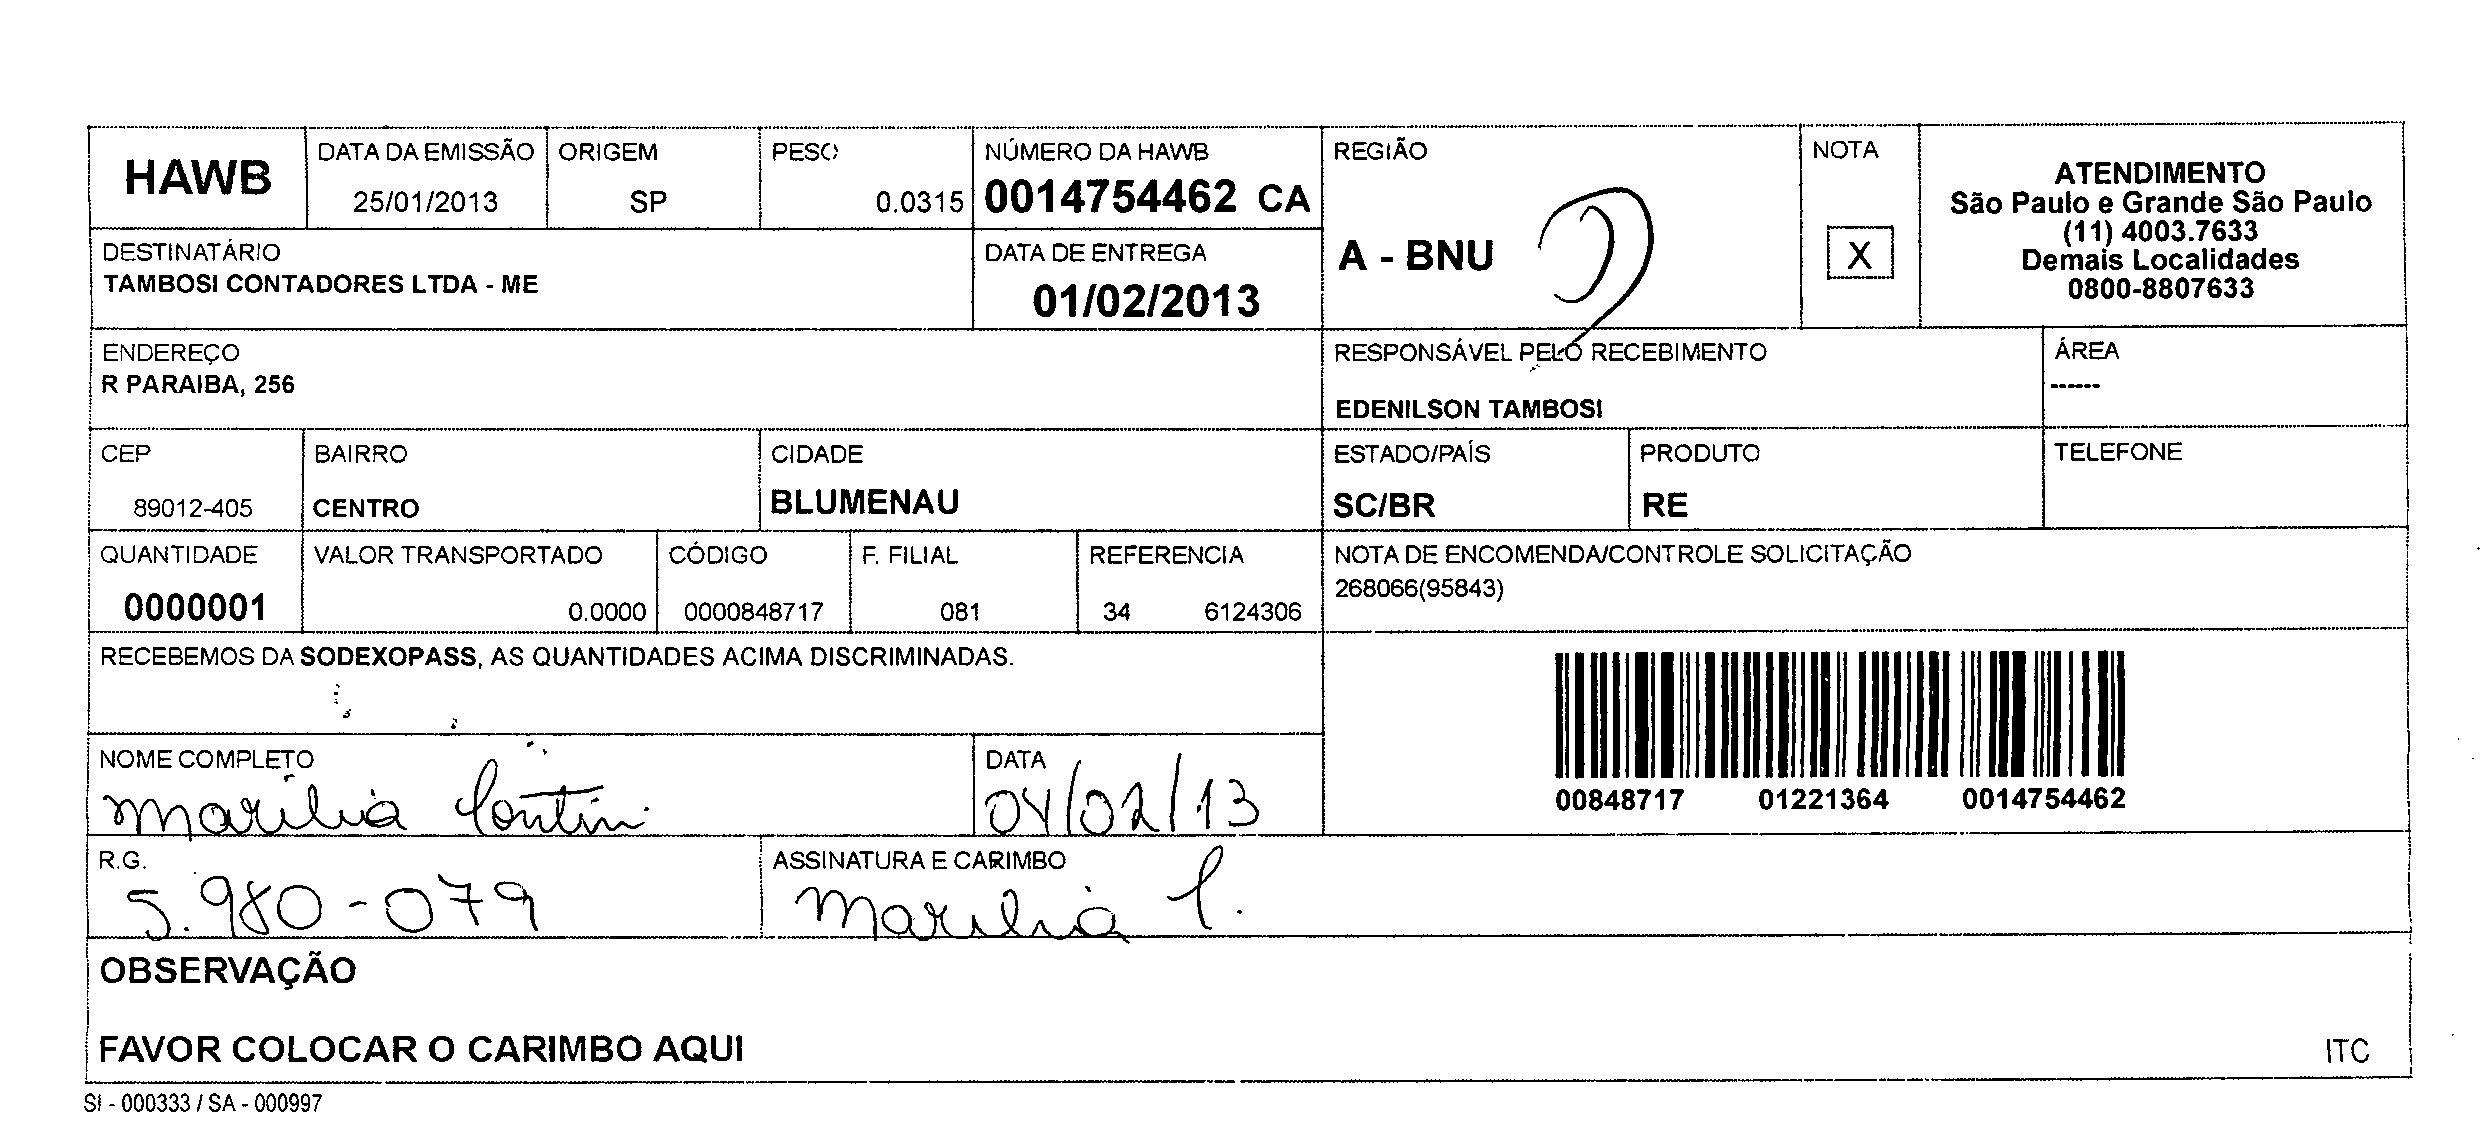 HAWB
DATA DA EMISSÃO
25/01/2013
ORIGEM
SP
PESO
0.0315
NÚMERO DA HAWB
0014754462 CA
REGIÃO
A - BNU
NOTA
X
ATENDIMENTO
São Paulo e Grande São Paulo
(11) 4003.7633
Demais Localidades
0800-8807633
DESTINATÁRIO
TAMBOSI CONTADORES LTDA - ME
DATA DE ENTREGA
01/02/2013
ENDEREÇO
R PARAIBA, 256
RESPONSÁVEL PELO RECEBIMENTO
EDENILSON TAMBOSI
ÁREA
------
CEP
89012-405
BAIRRO
CENTRO
CIDADE
BLUMENAU
ESTADO/PAÍS
SC/BR
PRODUTO
RE
TELEFONE
QUANTIDADE
0000001
VALOR TRANSPORTADO
0.0000
CÓDIGO
0000848717
F. FILIAL
081
REFERENCIA
34 6124306
NOTA DE ENCOMENDA/CONTROLE SOLICITAÇÃO
268066(95843)
RECEBEMOS DA SODEXOPASS, AS QUANTIDADES ACIMA DISCRIMINADAS.
00848717 01221364 0014754462
NOME COMPLETO
Marilia
DATA
04/02/13
R.G.
5.980-079
ASSINATURA E CARIMBO
Marilia
OBSERVAÇÃO
FAVOR COLOCAR O CARIMBO AQUI
ITC
SI - 000333 / SA - 000997